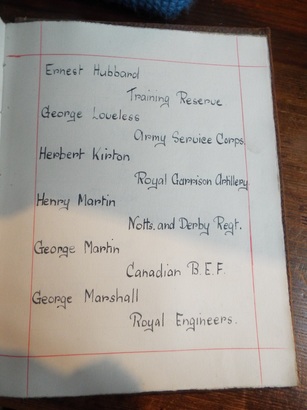 Ernest Hubbard
Training Reserve
George Loveless
Army Service Corps.
Herbert Kirton
Royal Garrison Artillery
Henry Martin
Notts. and Derby Regt.
George Martin
Canadian B.E.F.
George Marshall
Royal Engineers.